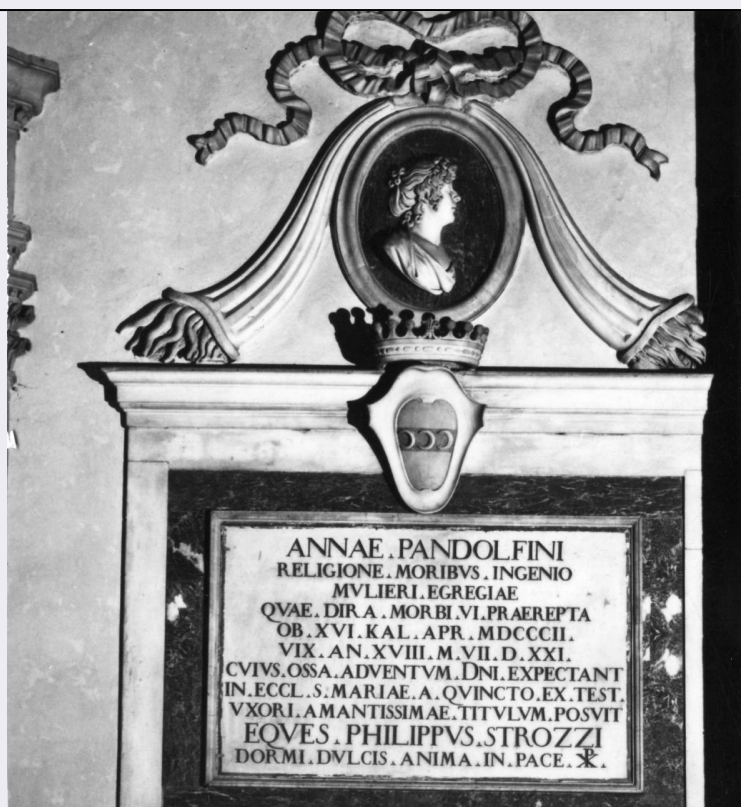 ANNAE . PANDOLFINI
RELIGIONE . MORIBVS . INGENIO
MVLIERI . EGREGIAE
QVAE . DIRA . MORBI . VI . PRAEREPTA
OB . XVI . KAL . APR . MDCCCII .
VIX . AN . XVIII . M . VII . D . XXI .
CVIVS . OSSA . ADVENTVM . DNI . EXPECTANT
IN . ECCL . S . MARIAE . A . QVINCTO . EX . TEST .
VXORI . AMANTISSIMAE . TITVLVM . POSVIT
EQVES . PHILIPPVS . STROZZI
DORMI . DVLCIS . ANIMA . IN . PACE . ☧ .